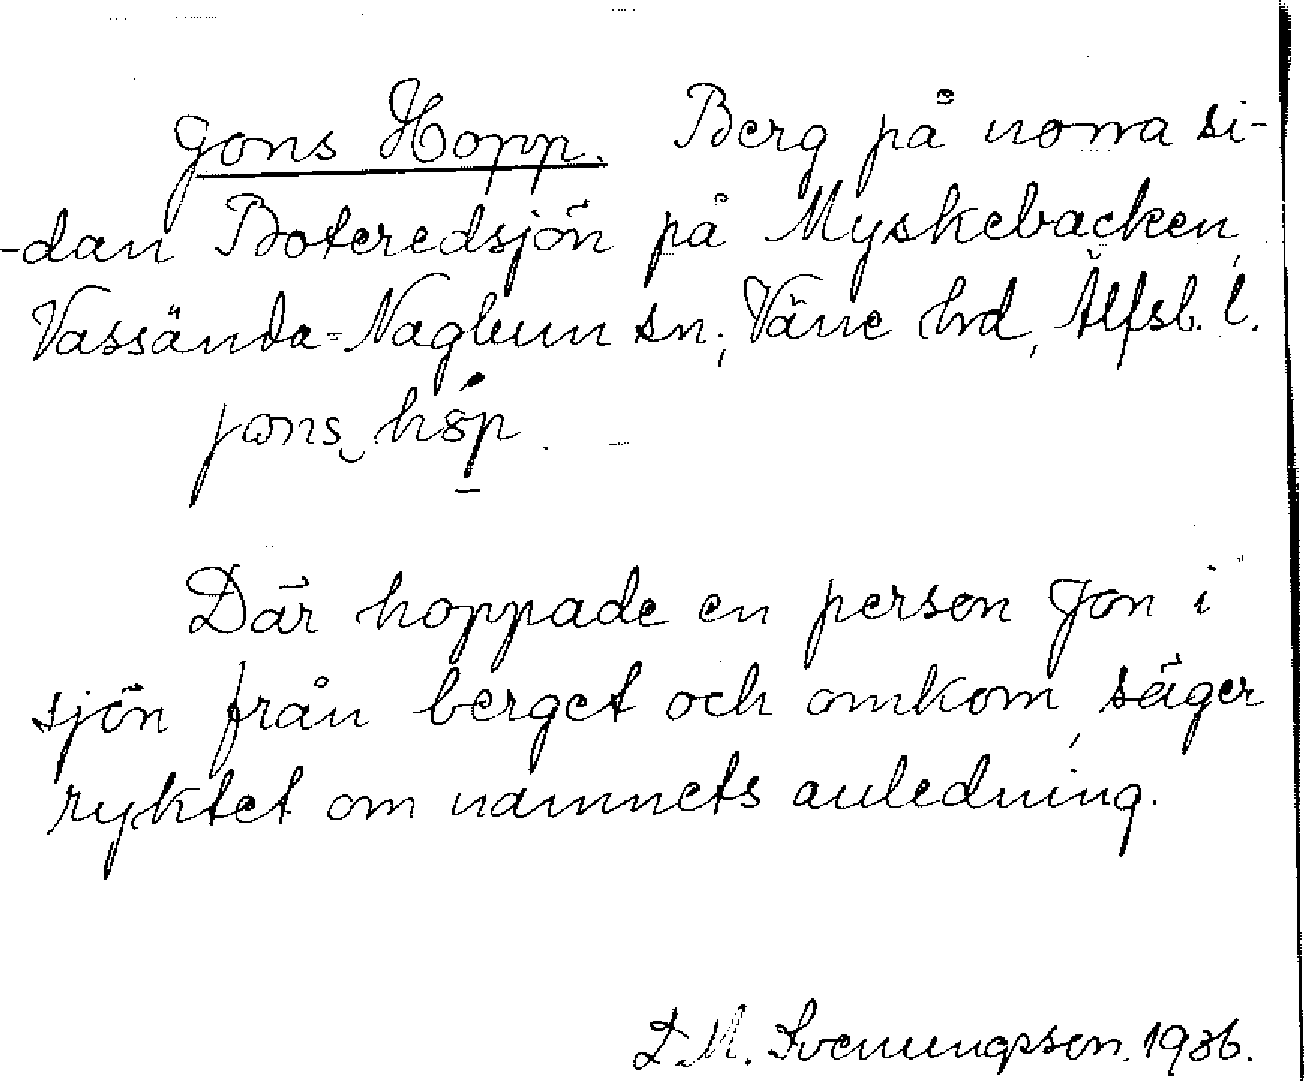 Jons Hopp. Berg på norra si-
-dan Boteredsjön på Myskebacken,
Vassända-Naglum sn; Väne hrd, Älfsb. l.
jons hop. –
Där hoppade en person Jon i
sjön från berget och omkom, säger
ryktet om namnets anledning.
D. M. Svenungsson. 1936.